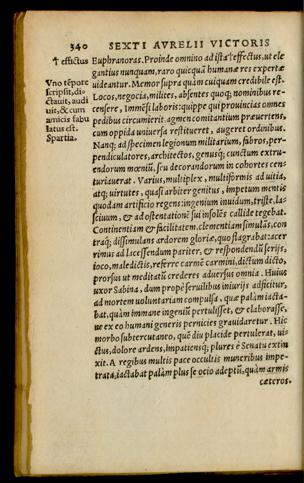 340 SEXTI AVRELII VICTORIS
† effictus
Vno tēpore
scripsit, di-
ctauit, audi
uit, & cum
amicis fabu
latus est.
Spartia.
Euphranoras. Proinde omnino ad ista † effectus, ut ele
gantius nunquam, raro quicquā humanæ res expertæ
uideantur. Memor supra quàm cuiquam credibile est.
Locos, negocia, milites, absentes quoq; nominibus re-
censere, Immēsi laboris: quippe qui prouincias omnes
pedibus circumierit, agmen comitantium præuertens,
cum oppida uniuersa restitueret, augeret ordinibus.
Nanq; ad specimen legionum militarium, fabros, per-
pendiculatores, architectos, genusq; cunctum extru-
endorum mœniū, seu decorandorum in cohortes cen-
turiauerat. Varius, multiplex, multiformis ad uitia,
atq; uirtutes, quasi arbiter genitus, impetum mentis
quodam artificio regens: ingenium inuidum, triste, la-
sciuum, & ad ostentationē sui insolēs callide tegebat.
Continentiam & facilitatem, clementiam simulās, con
traq; dissimulans ardorem gloriæ, quo flagrabat: acer
rimus ad lacessendum pariter, & respondendū serijs,
ioco, maledictis, referre carmē carmini, dictum dicto,
prorsus ut meditatū crederes aduersus omnia. Huius
uxor Sabina, dum propè seruilibus iniurijs adficitur,
ad mortem uoluntariam compulsa, quæ palàm iacta-
bat, quàm immane ingeniū pertulisset, & elaborasse,
ne ex eo humani generis pernicies grauidaretur. Hic
morbo subtercutaneo, quē diu placide pertulerat, ui-
ctus, dolore ardens, impatiensq; plures è Senatu extin
xit. A regibus multis pace occultis muneribus impe-
trata, iactabat palàm plus se ocio adeptū, quàm armis
cæteros.